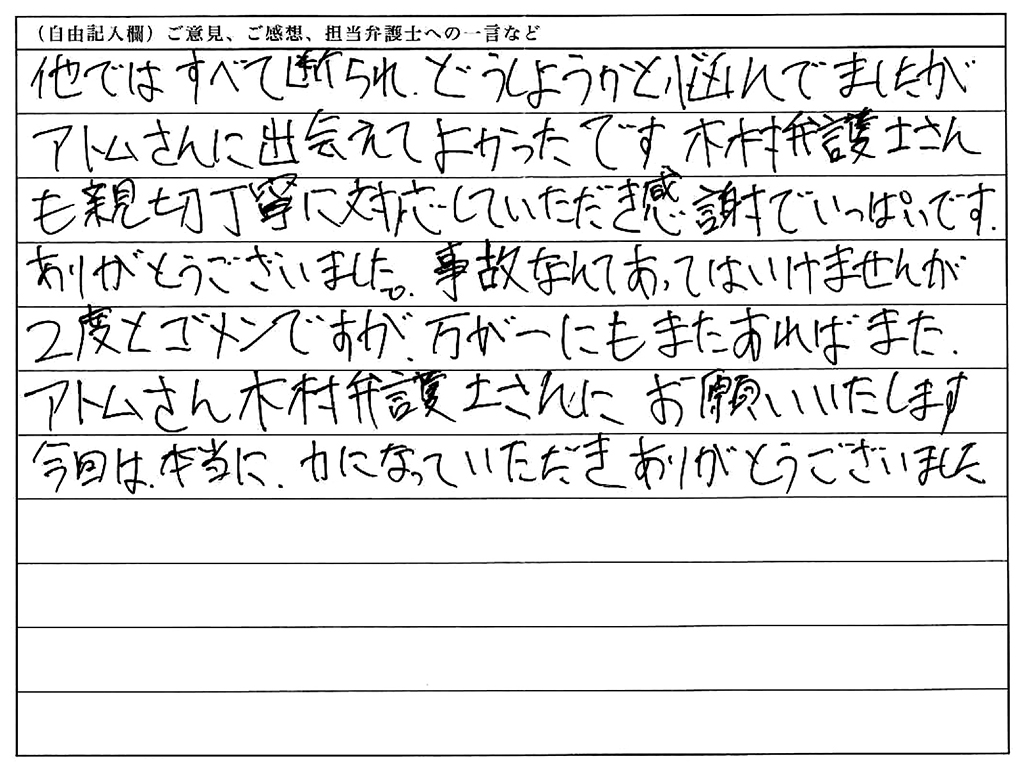 （自由記入欄）ご意見、ご感想、担当弁護士への一言など
他ではすべて断られ、どうしようかと悩んでましたが
アトムさんに出会えてよかったです 木村弁護士さん
も親切丁寧に対応していただき感謝でいっぱいです.
ありがとうございました。事故なんてあってはいけませんが
2度とゴメンですが、万が一にもまたあればまた、
アトムさん木村弁護士さんにお願いいたします
今回は、本当に、力になっていただきありがとうございました